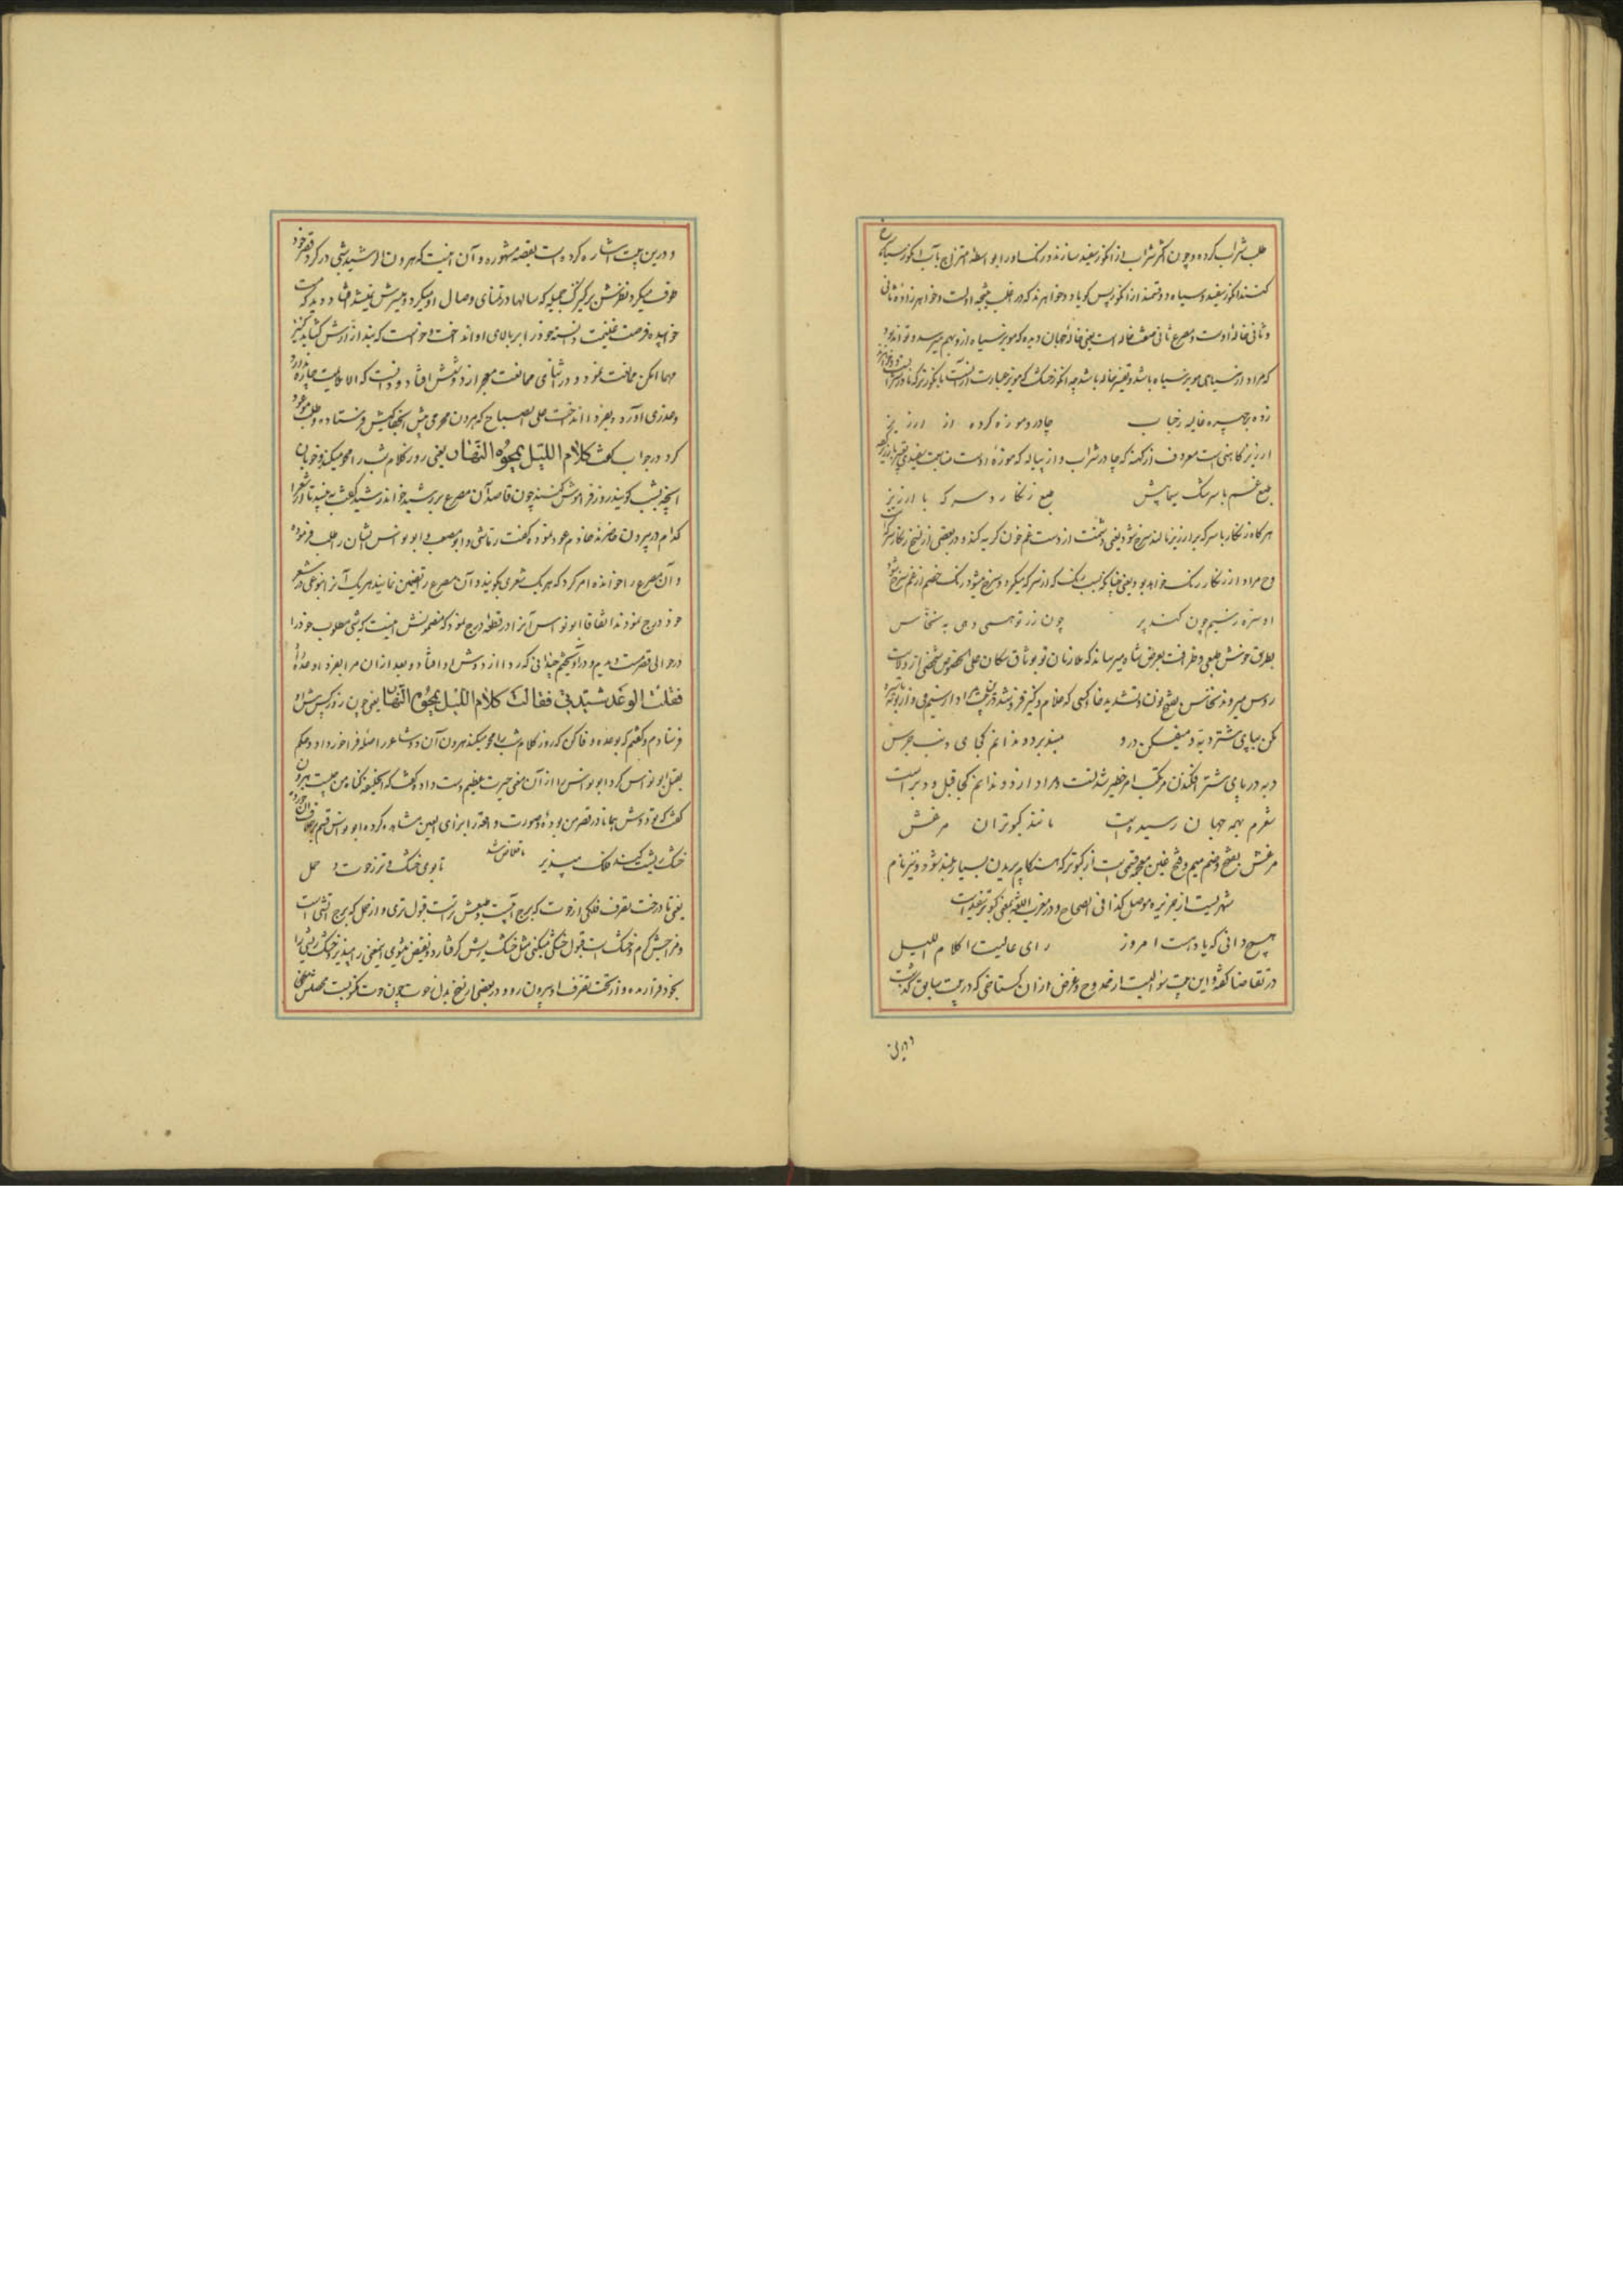 طلب شراب کرده و چون اکثر شراب از انکور سفید سازند و رنک او را بواسطه امتزاج بآب انکور سیاه
کنند انکور سفید و سیاه دو تمند از انکور پس کویا دو خواهرند که در
و ثانی خاله اوست و مصرع ثانی صفت خاله است یعنی خاله جهان دیده که مویز سیاه از و بهم میرسد و تواند بود
که مراد از سیاهی مویز سیاه باشد و
زده بر چهره غالیه رخیاب چادر و موزه کرده از ارزیز
ارزیز کاهنی است معروف از کهنه که چادر شراب و از پیاله که موزهٔ اوست مناسبت سفیدی
طبع غم با سرشک سیماپش طبع زنکار و سرکه با ارزیز
هر کاه زنکار با سرکه بر ارزیز نالند سرخ شود یعنی دشمنت از دست غم خون کرید کند و در بعضی از نسخ زنکار سرکه
وح مراد از زنکار رنک خواهد بود یعنی چنانکه رنک که از سرکه میکرد و سرخ میشود رنک خصم از غم سرخ شود
اوستره سیم چون کند پر چون زر تو همی دهی به نخاس
بطریق خوش طبعی و ظرافت بعرض شاه میرساند که ملازمان تو بوثاق سکان علی الخصوص شخصی از ولایت
روس میروند نخاس بفتح نون و تشدید خا کسی که غلام و کنیز فروشد
مکن بپای شتر دبّه و میفکن در و میندبرد و ندانم کجای دنب جرس
دبه در پای شتر افکندن مرتکب امر خطیر شدنست و مراد از دو ندانم کجا قبل و دبر است
شعرم بهمه جهان رسیدست مانند کبوتران مرعش
مرعش بفتح و ضم میم و فتح غین معجمه قسمی است از کبوتر که هنکام پریدن بسیار بلند شود و نیز نام
شهریست از جزیره موصل کذا فی الصحاح و در مغرب اللغه بمعنی کبوتر سفید است
هیچ دانی که یادت است امروز رای عالیت را کلام اللیل
در تقاضا کفته و این بیت سئوالیست از ممدوح و غرض از آن کستاخی که در بیت سابق کذشت
و درین
و درین بیت اشاره کرده است بقصه مشهوره و آن اینست که هرون الرشید شبی در کرد قصر خود
طوف میکرد نظرش بر کنیزک جمیله که سالها در تمنای وصال او میکرد و میسرش نمیشد افتاد و دید که مست
خوابیده فرصت غنیمت دانسته خود را بر بالای او انداخت و خواست که بند ازارش کشاید کنیز
مهما امکن ممانعت نمود و در اثنای ممانعت معجر از دوشش افتاد و دانست که الا علاجیست چاره ندارد
و عذری آورد و بفردا انداخت علی الصباح که هرون محرمی پیش کنیزکش فرستاده و طلب موعود
کرد در جواب کفت کَلامُ اللَیْلِ یَمْحُوهُ النَهَارُ یعنی روز کلام شب را محو میکند و خوبان
آنچه بشب کویند روز فراموش کنند چون قاصد آن مصرع بر رشید خواند رشید کفت به بینید تا از شعرا
کدام در بیرون حاضرند خادم عود نمود و کفت رقاشی و ابو مصعب و ابو نواس ایشان را طلب فرموده
و آن مصرع را خوانده امر کرد که هر یک شعری بکویند و آن مصرع را تضمین نمایند هر یک آنرا بنوعی در شعر
خود درج نمودند اتفاقا ابو نواس آنرا در قطعه درج نمود که مضمونش اینست که شبی مطلوب خود را
در حوالی قصر مست دیدم و در آویختم چنانی که ردا از دوش او افتاد و بعد از آن مرا بفردا وعده
فَقُلْتُ الوَعْدَ سَیّدَتِی فَقَالَتْ کَلامُ اللَیْلِ یَمْحُوهُ النَهَارُ یعنی چون روز کس پیش او
فرستادم و کفتم که بوعده وفا کن که روز کلام شب را محو میکند هرون آن دو شاعر را صله فراخور داد و حکم
بقتل ابو نواس کرد ابو نواس را از آن معنی حیرت عظیم دست داد و کفت که ایخلیفه کناه من چیست هرون
کفت که تو دوش همانا در قصر من بوده و صورت واقعه را برای العین مشاهده کرده ابو نواس قسم
خشک ریشت کند فلک مپذیر تا بوی خشک و تر ز حوت و حمل
یعنی تا در تحت تصرف فلکی از حوت که برج آبیست و طبعش تر است قبول تری و از حمل که برج آتشی است
و مزاجش کرم و خشک است قبول خشکی میکنی مثل خشک ریش کرفتار دو نقیض میشوی این معنی را مپذیر و خشک ریشی را
بخود قرار مده و از تحت تصرف او بیرون رو و در بعضی از نسخ بدل حوت